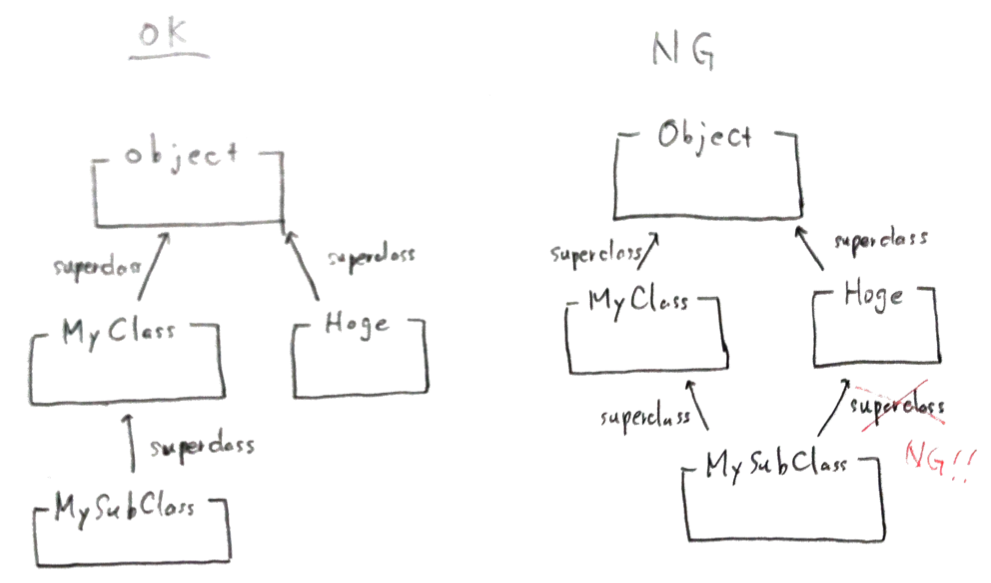 OK
object
superclass
superclass
MyClass
Hoge
superclass
MySubClass
NG
Object
superclass
superclass
MyClass
Hoge
superclass
superclass
NG!!
MySubClass